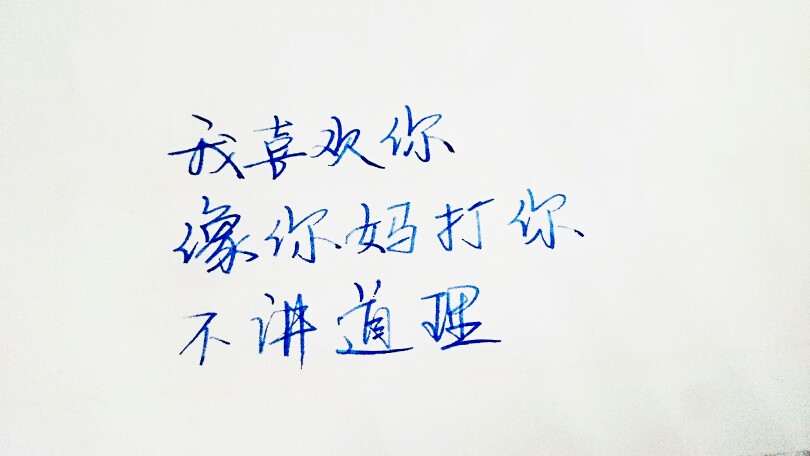 我喜欢你
像你妈打你
不讲道理